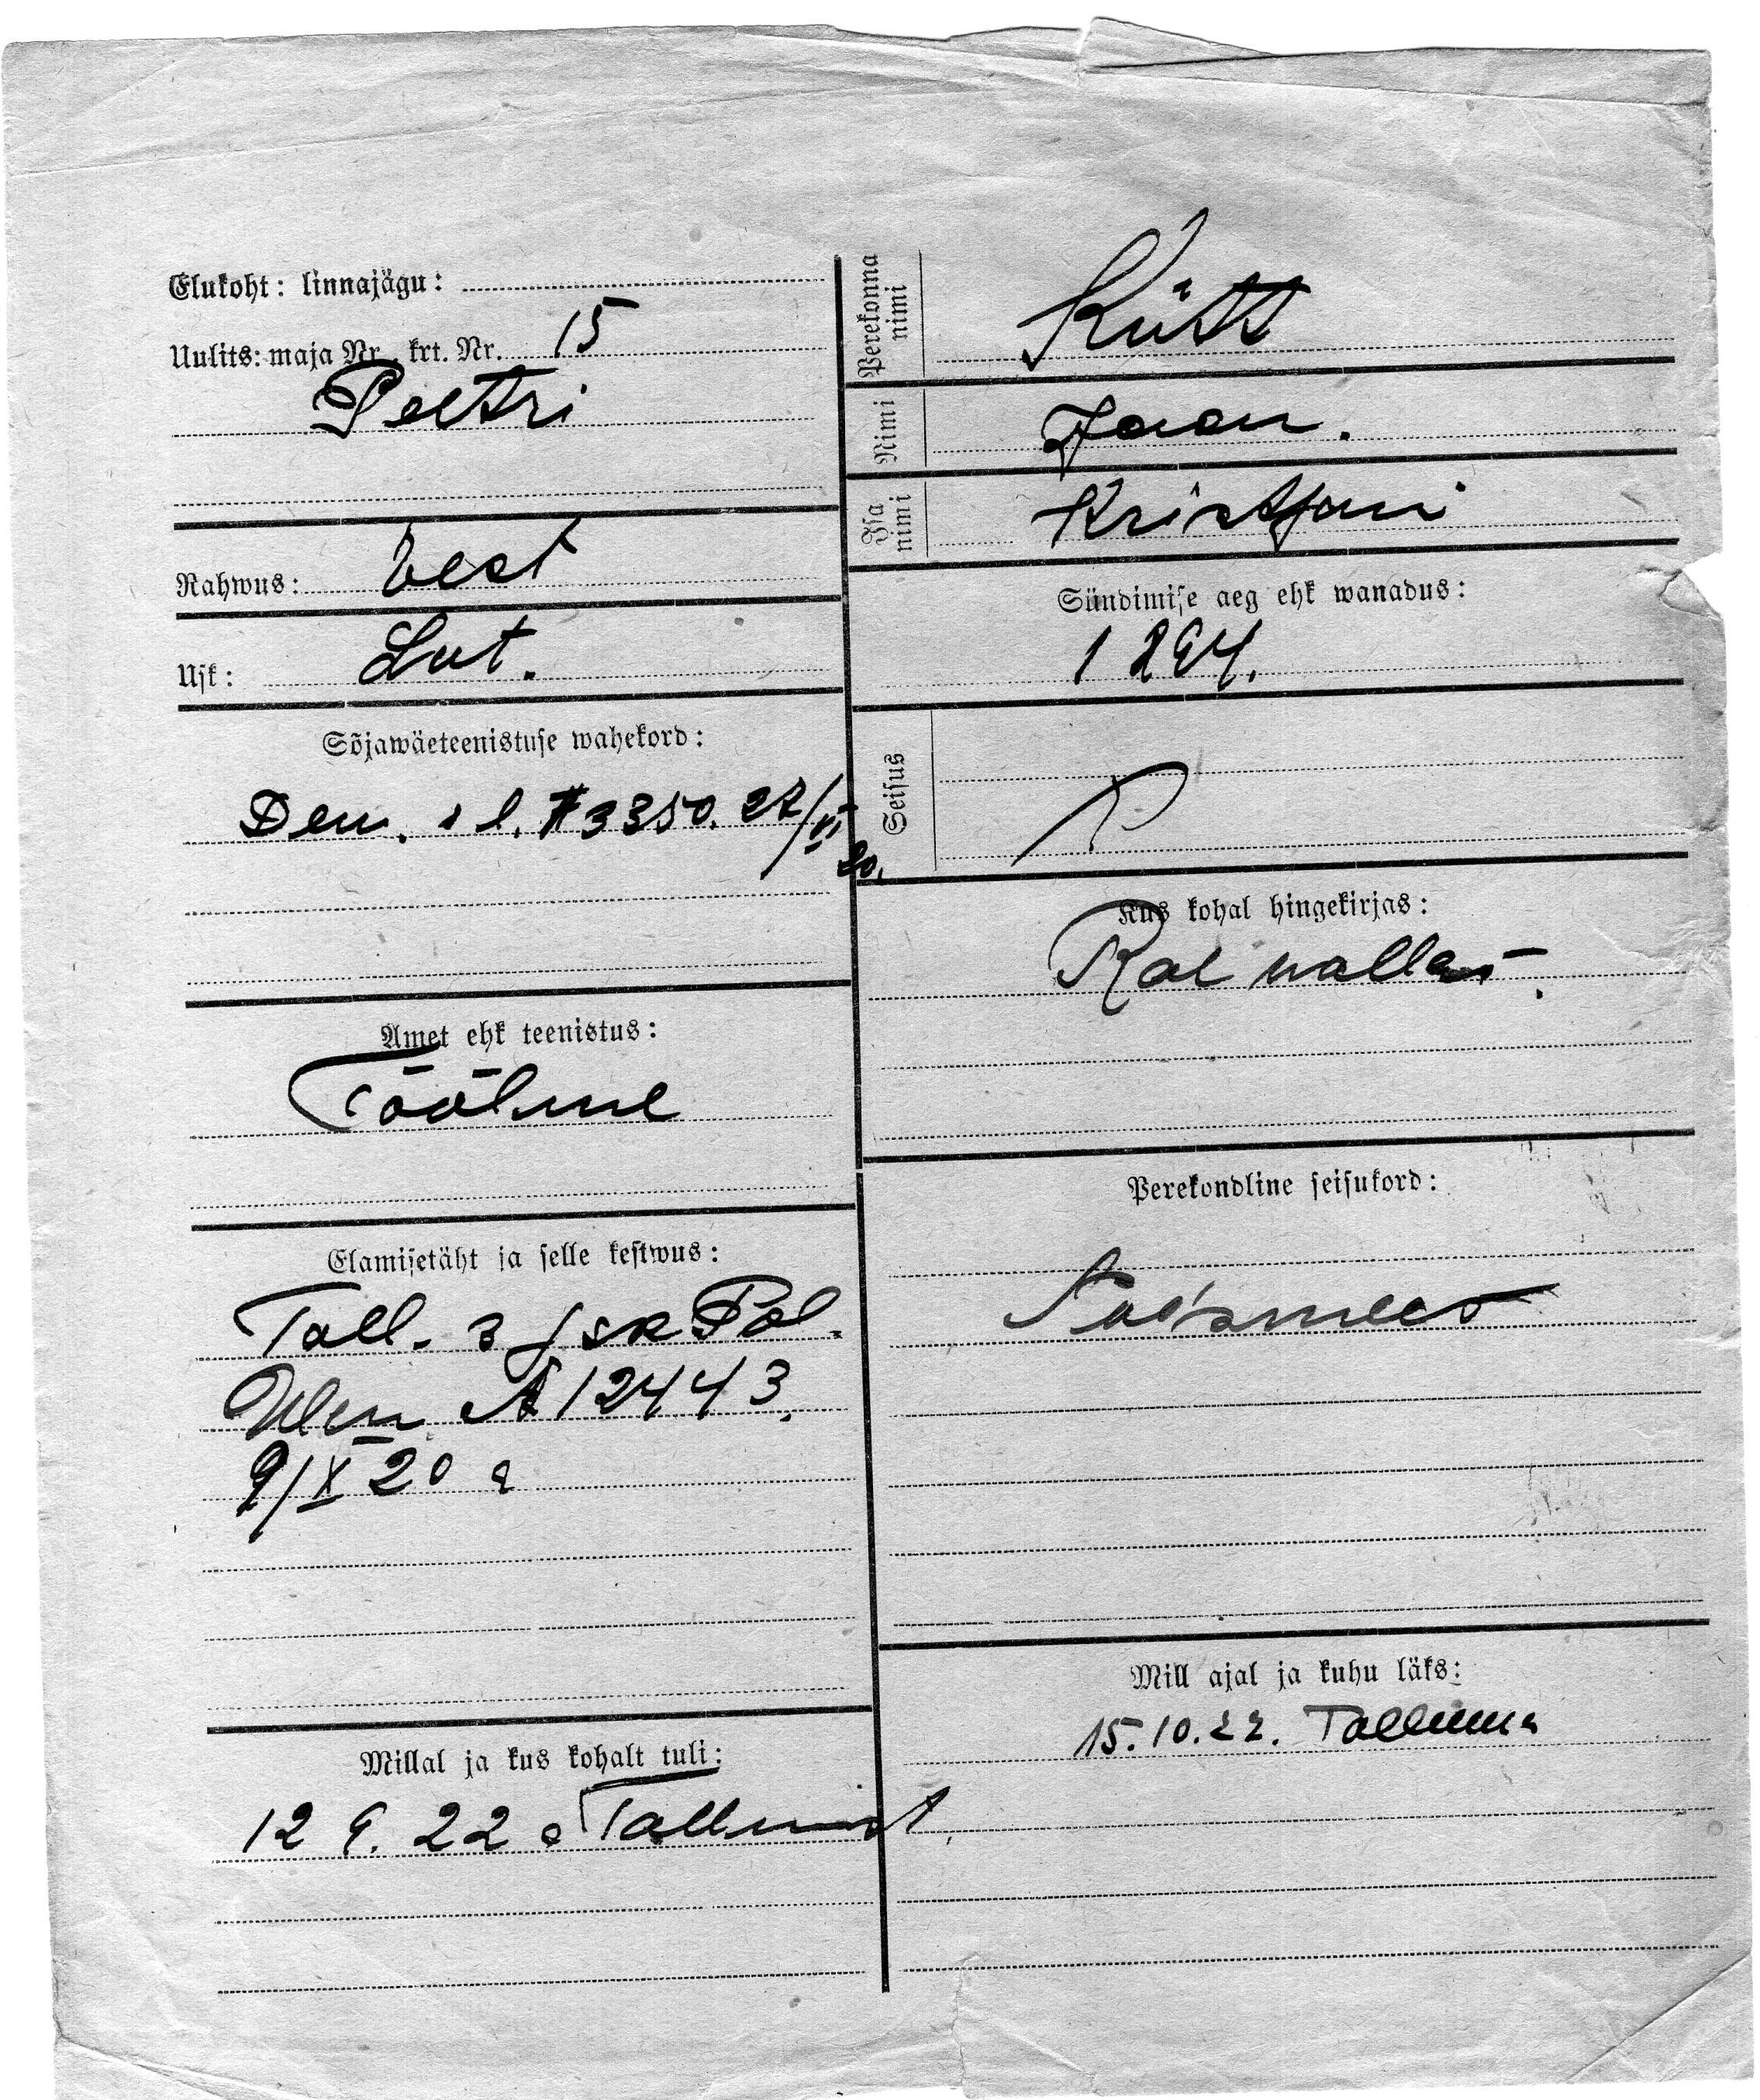 Elukoht: linnajägu:
Uulits: maja Nr. krt. Nr. 15
Peetri
Rahwus: Eest
Usk: Lut.
Sõjawäeteenistuse wahekord:
Dem. s l. # 3350. 27/VI
20.
Amet ehk teenistus:
Tööline
Elamisetäht ja selle kestwus:
Tall. 3 jsk Pol.
Ülem № 12443.
9/X 20 a
Millal ja kus kohalt tuli:
12 9. 22 a Tallinnast.
Perekonna nimi
Kütt
Nimi
Jaan.
Isa nimi
Kristjani
Sündimise aeg ehk wanadus:
1894.
Seisus
Kus kohal hingekirjas:
Rae wallas.
Perekondline seisukord:
Naismees
Mill ajal ja kuhu läks:
15.10.22. Tallinna